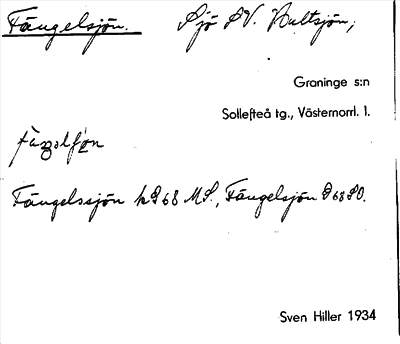 Fängelsjön. Sjö SV. Hultsjön,
Graninge s:n
Sollefteå tg., Västernorrl. l.
Fängelssjön k S 68 MS., Fängelsjön S 68 SO.
Sven Hiller 1934